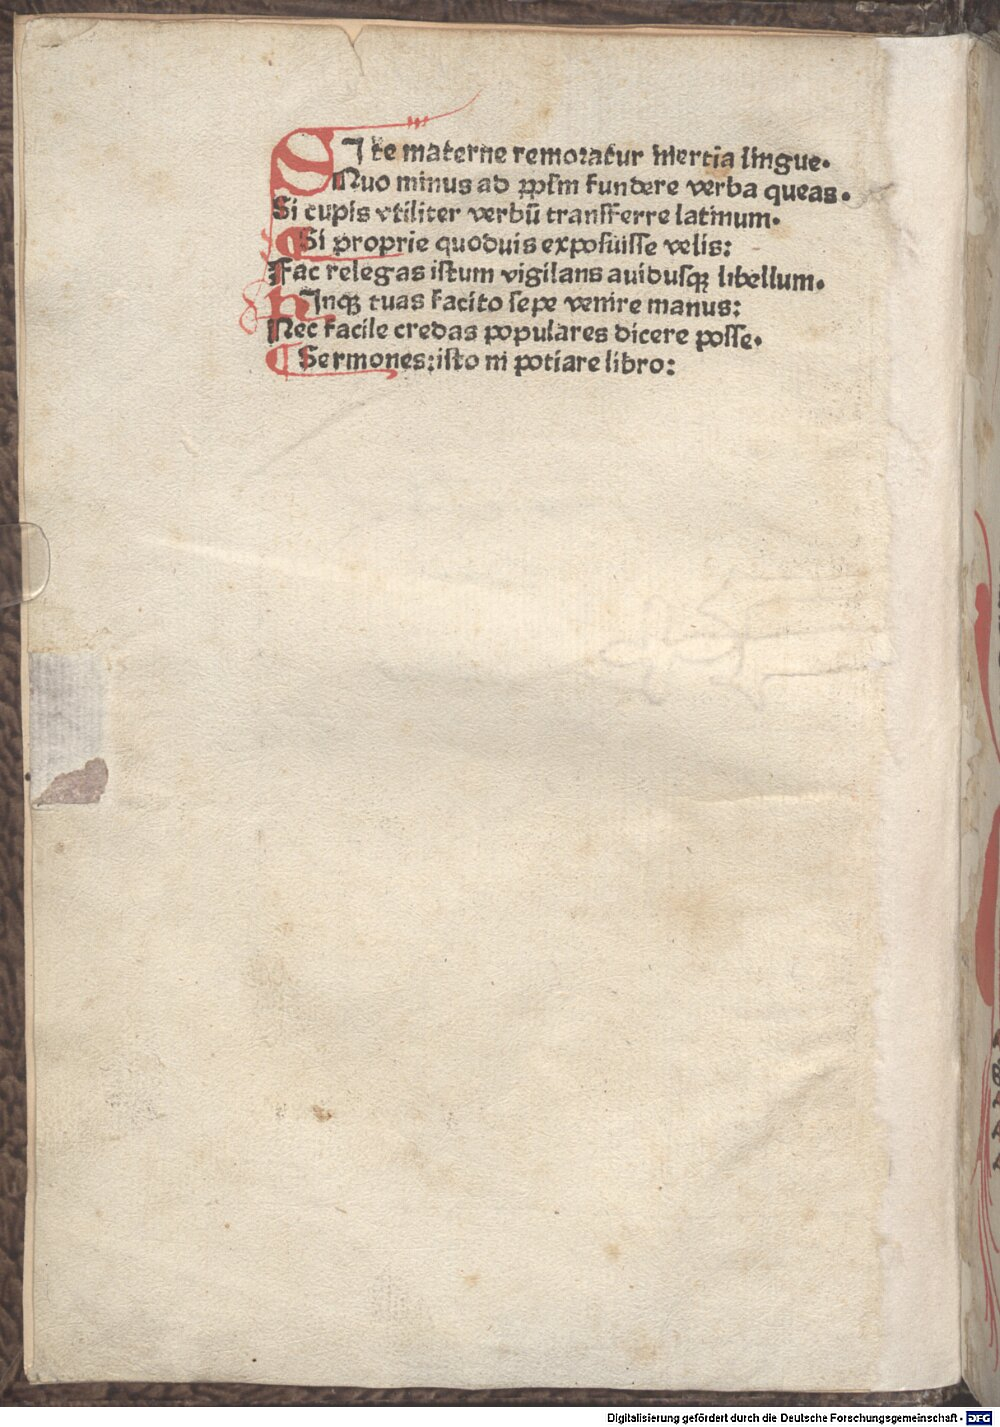 SI te materne remoratur inertia lingue.
Quo minus ad ꝓpiũ fundere verba queas.
Si cupis vtiliter verbũ transferre latinum.
Si proprie quoduis exposuisse velis:
Fac relegas istum vigilans auidusqꝫ libellum.
Inqꝫ tuas facito sepe venire manus:
Nec facile credas populares dicere posse.
Sermones: isto ni potiare libro:
Digitalisierung gefördert durch die Deutsche Forschungsgemeinschaft - DFG